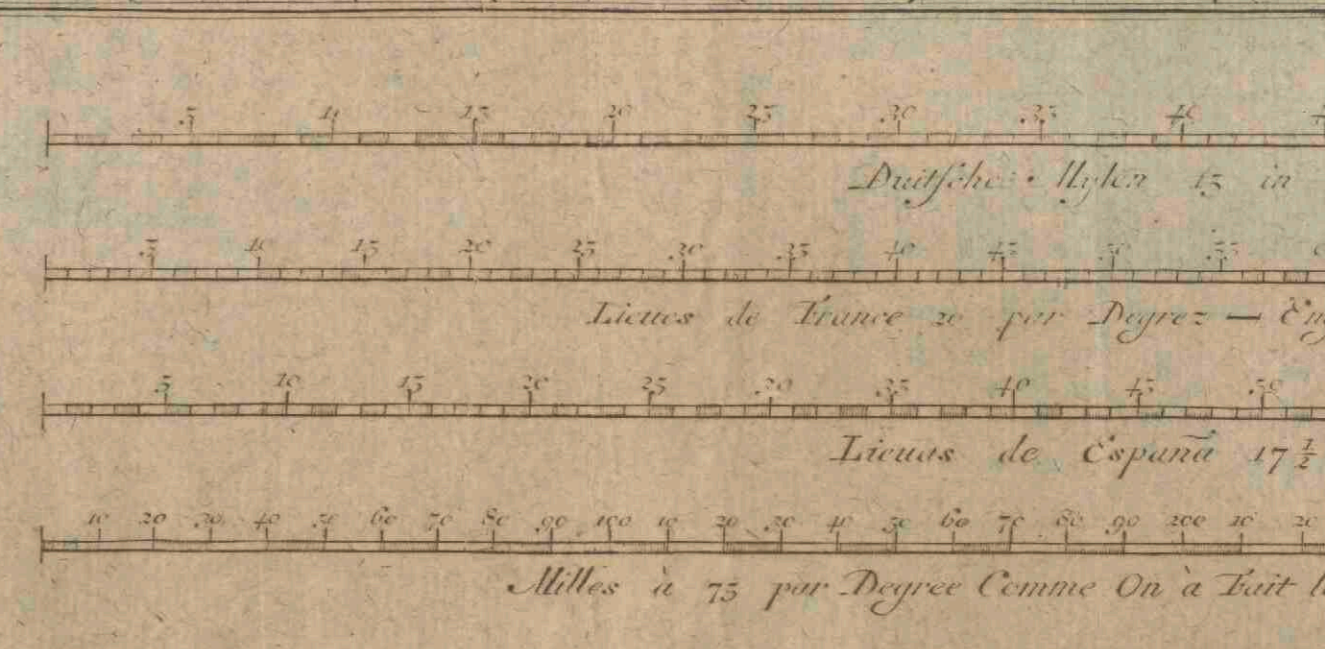 5 10 15 20 25 30 35 40
Duitsche Mylen 15 in
5 10 15 20 25 30 35 40 45 50 55
Lieues de France 20 par Degrez — Eng
5 10 15 20 25 30 35 40 45 50
Lieuas de España 17 ½
10 20 30 40 50 60 70 80 90 100 10 20 30 40 50 60 70 80 90 200 10 20
Milles à 75 par Degree Comme On à Fait l